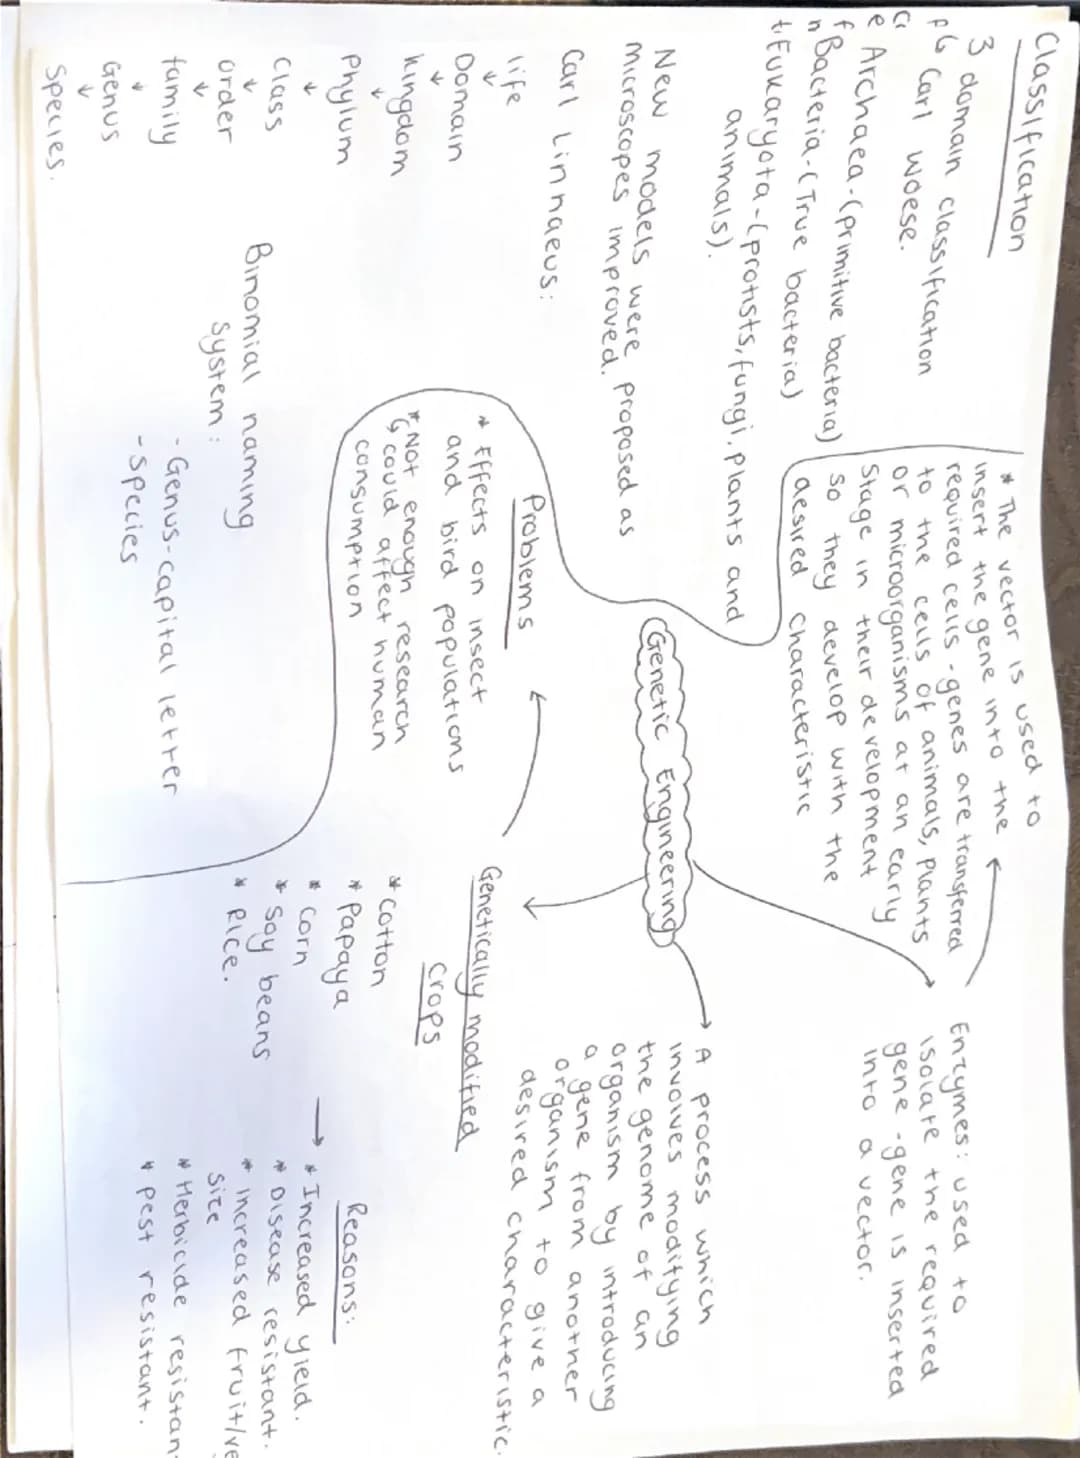 Classification
3 domain classification
↳ Carl Woese.
Archaea-(primitive bacteria)
Bacteria-(True bacteria)
Eukaryota-(protists, fungi, plants and
animals).
New models were proposed as
microscopes improved.
Carl Linnaeus:
life
↓
Domain
↓
kingdom
↓
Phylum
↓
Class
↓
order
↓
family
↓
Genus
↓
Species.
Binomial naming
system:
- Genus-capital letter
- Species
Genetic Engineering
→ A process which
involves modifying
the genome of an
organism by introducing
a gene from another
organism to give a
desired characteristic.
Enzymes: used to
isolate the required
gene - gene is inserted
into a vector.
* The vector is used to
insert the gene into the
required cells - genes are transferred
to the cells of animals, plants
or microorganisms at an early
stage in their development
so they develop with the
desired characteristic
Genetically modified
crops
* cotton
* Papaya
* Corn
* Soy beans
* Rice.
→
Reasons:
* Increased yield.
* Disease resistant.
* increased fruit/ve
size
* Herbicide resistan
* pest resistant.
Problems
* Effects on insect
and bird populations
* Not enough research
↳ could affect human
consumption